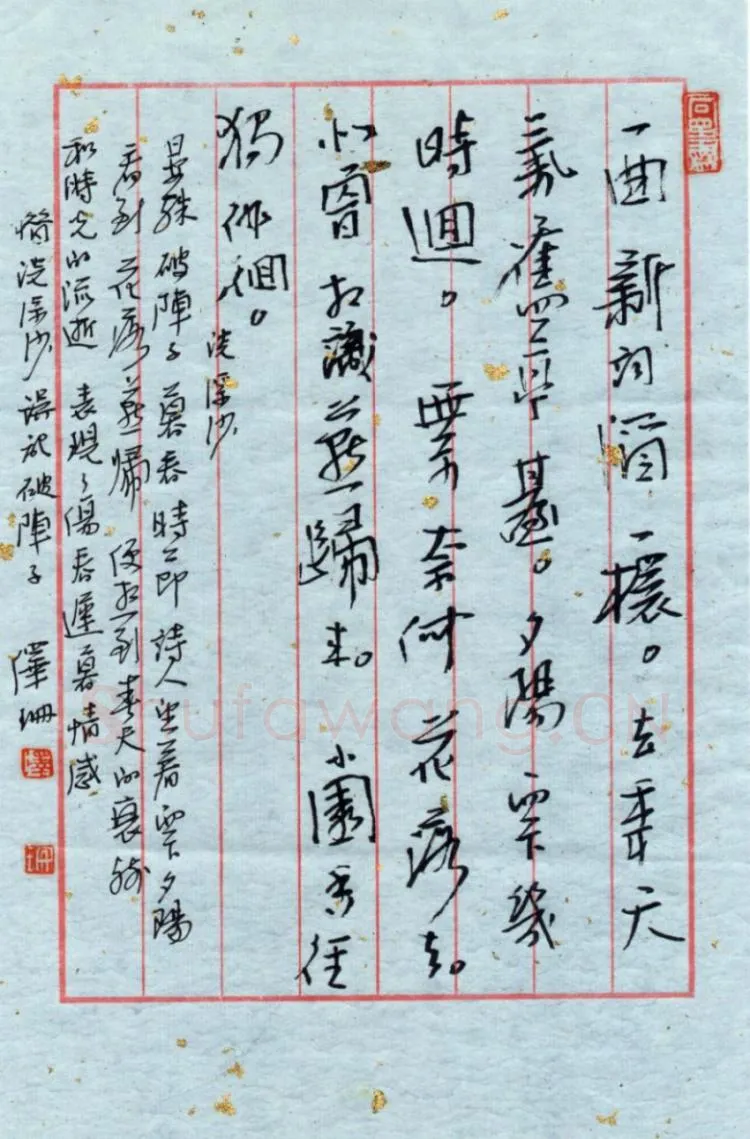 一曲新詞酒一杯。去年天
氣舊亭臺。夕陽西下幾
時迴。無可奈何花落去。
似曾相識燕歸來。小園香徑
獨徘徊。
浣溪沙
晏殊 破陣子 暮春時節 詩人望着西下夕陽
看到花落燕歸 便想到春天的衰殘
和時光的流逝 表現了傷春遲暮情感
將浣溪沙 誤於破陣子 澤珊
Shufawang.CN